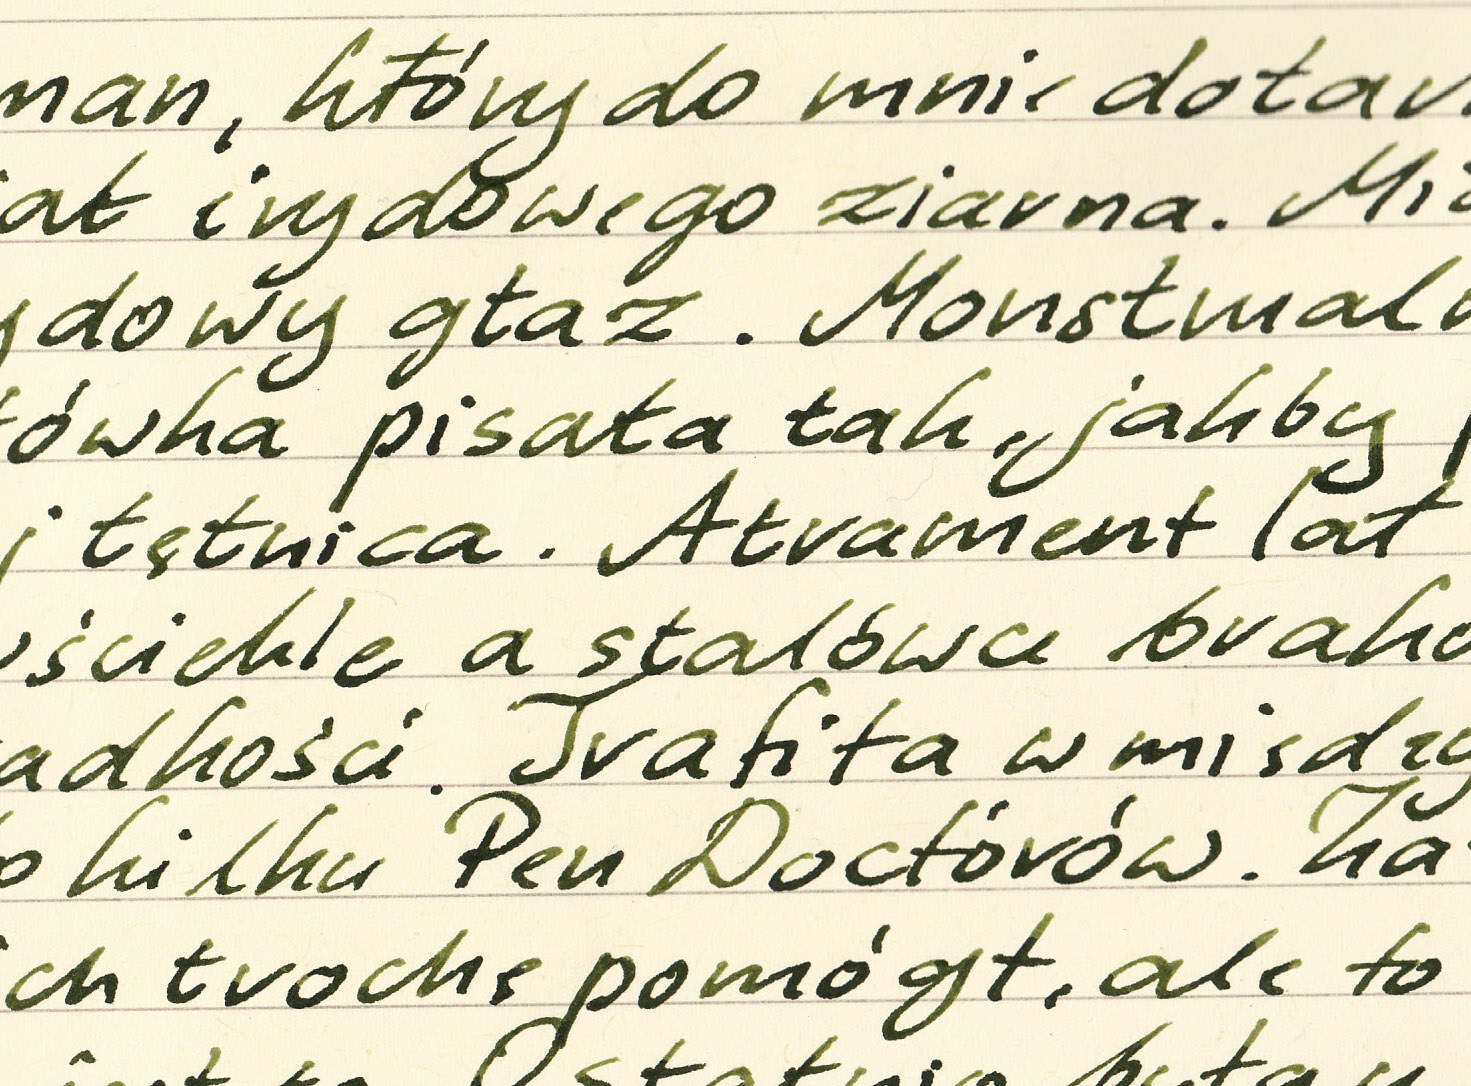 man, który do mnie dotar
iał irydowego ziarna. Mia
ydowy głaz. Monstrualn
ówka pisała tak, jakby p
j tętnica. Atrament lał
wściekle a stalówce brako
adkości. Trafiła w między
o kilku Pen Doctórów. Każ
ich trochę pomógł, ale to
Ostatnio byłam